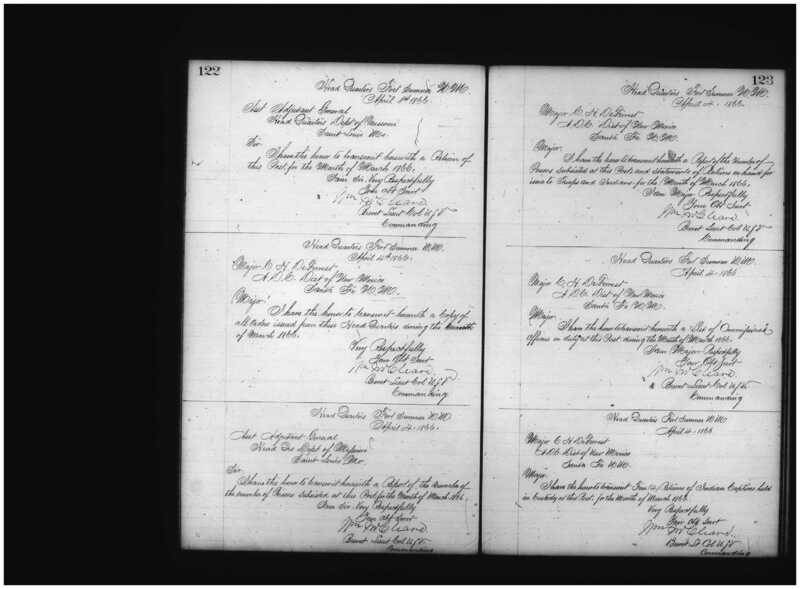 122
Head Quarters Fort Sumner N.M.
April 4th 1866
Asst Adjutant General
Head Quarters Dept of Missouri
Saint Louis Mo.
Sir.
I have the honor to transmit herewith a Return of
this Post for the Month of March 1866.
I am Sir, Very Respectfully
Your Obt Servt
Wm McCleave
Brevet Lieut Col U.S.V
Commanding
Head Quarters Fort Sumner N.M.
April 4th 1866.
Major C H DeForrest
A.D.C. Dist of New Mexico
Santa Fe N.M.
Major.
I have the honor to transmit herewith a Copy of
all orders issued from these Head Quarters during the Month
of March 1866.
Very Respectfully
Your Obt Servt
Wm McCleave
Brevet Lieut Col U.S.V
Commanding
Head Quarters Fort Sumner N.M.
April 4. 1866.
Asst Adjutant General
Head Qrs Dept of Missouri
Saint Louis Mo.
Sir.
I have the honor to transmit herewith a Report of the Number of
the number of Persons Subsisted at this Post for the Month of March 1866.
I am Sir Very Respectfully
Your Obt Servt
Wm McCleave
Brevet Lieut Col U.S.V
Commanding
123
Head Quarters Fort Sumner N.M.
April 4. 1866.
Major C. H. DeForrest
A.D.C. Dist of New Mexico
Santa Fe N.M.
Major.
I have the honor to transmit herewith a Report of the Number of
Persons Subsisted at this Post, and Statements of Rations on hand for
issue to Troops and Indians for the Month of March 1866.
I am Major Respectfully
Your Obt Servt
Wm McCleave
Brevet Lieut Col U.S.V
Commanding
Head Quarters Fort Sumner N.M.
April 4. 1866
Major C H DeForrest
A.D.C. Dist of New Mexico
Santa Fe N.M.
Major.
I have the honor to transmit herewith a List of Commissioned
Officers on duty at this Post during the Month of March 1866
I am Major Respectfully
Your Obt Servt
Wm McCleave
Brevet Lieut Col U.S.V
Commanding
Head Quarters Fort Sumner N.M.
April 4. 1866
Major C H DeForrest
A.D.C. Dist of New Mexico
Santa Fe N.M.
Major
I have the honor to transmit Returns of Indian Captives held
in Custody at this Post, for the Month of March 1866.
Very Respectfully
Your Obt Servt
Wm McCleave
Brevet Lt Col U.S.V
Commanding